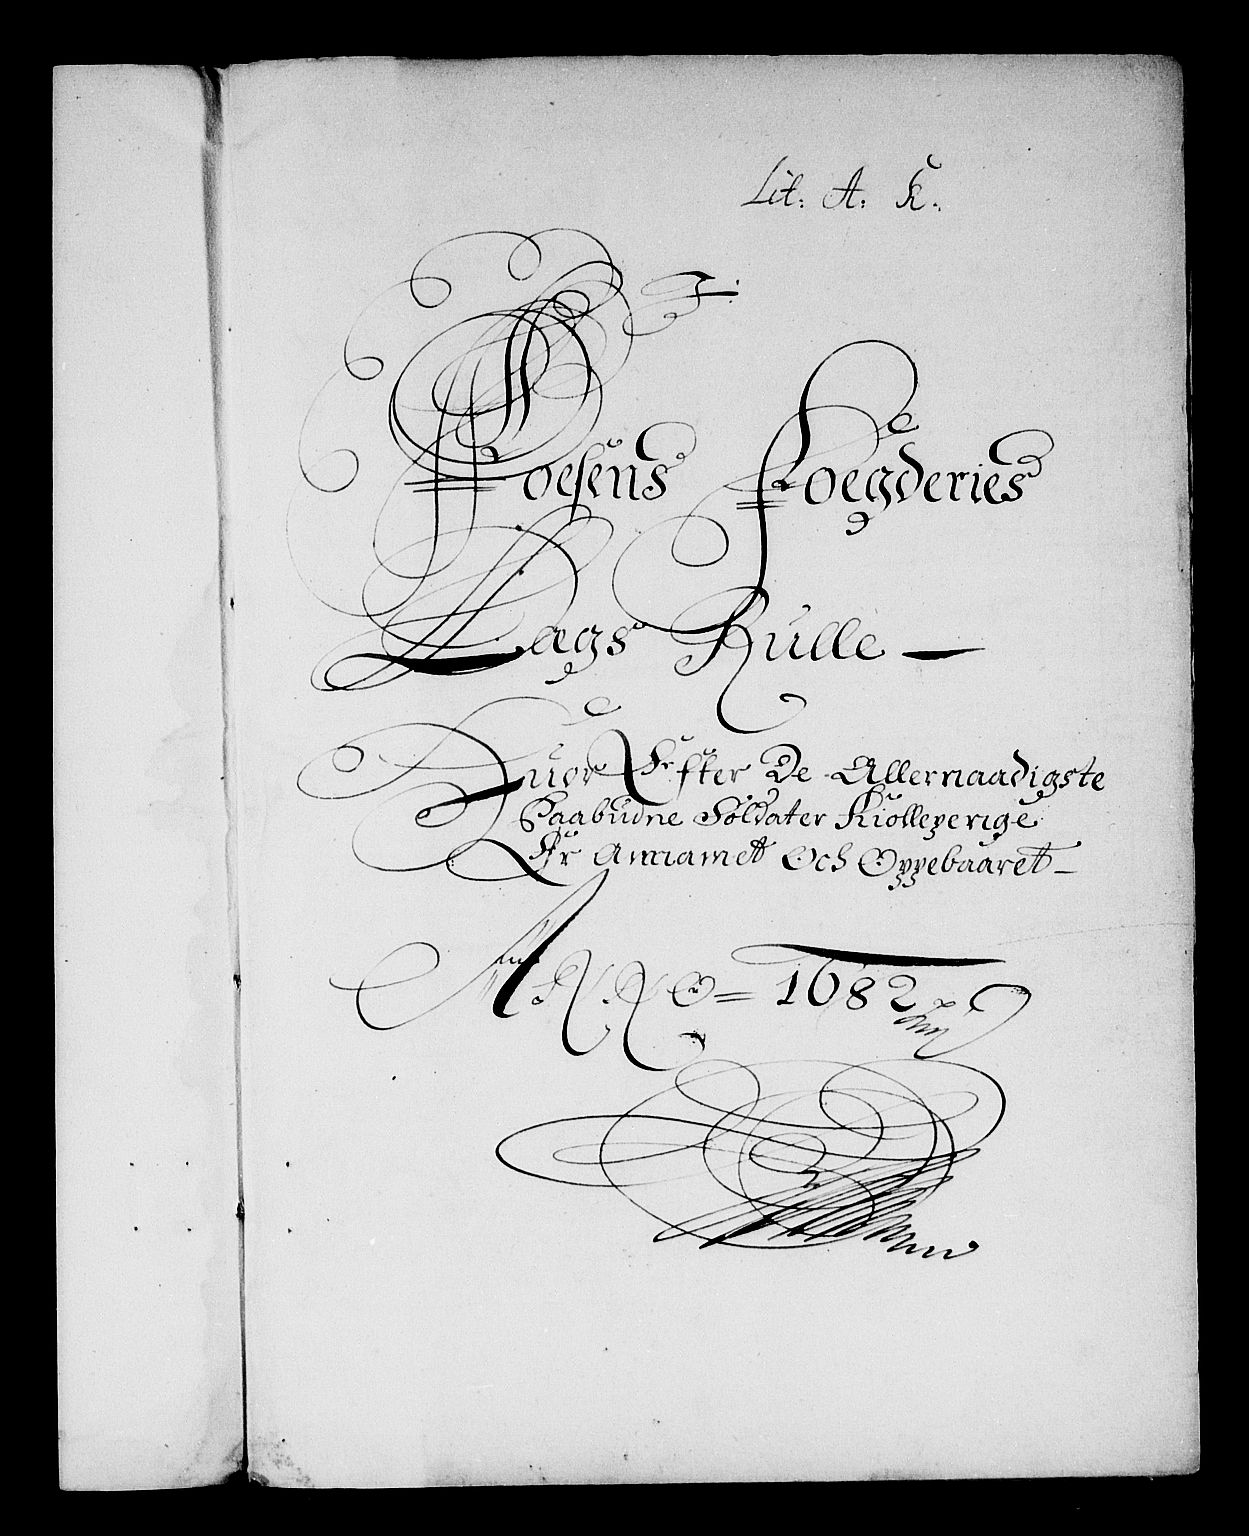 Lit: A: K.
J:
Foesens Foegderies
Lægs Rulle —
Huor Efter De Allernaadigste
Paabudne Soldater Kiollepenge
Er Annamet Och Oppebaaret —
ANNO = 1682